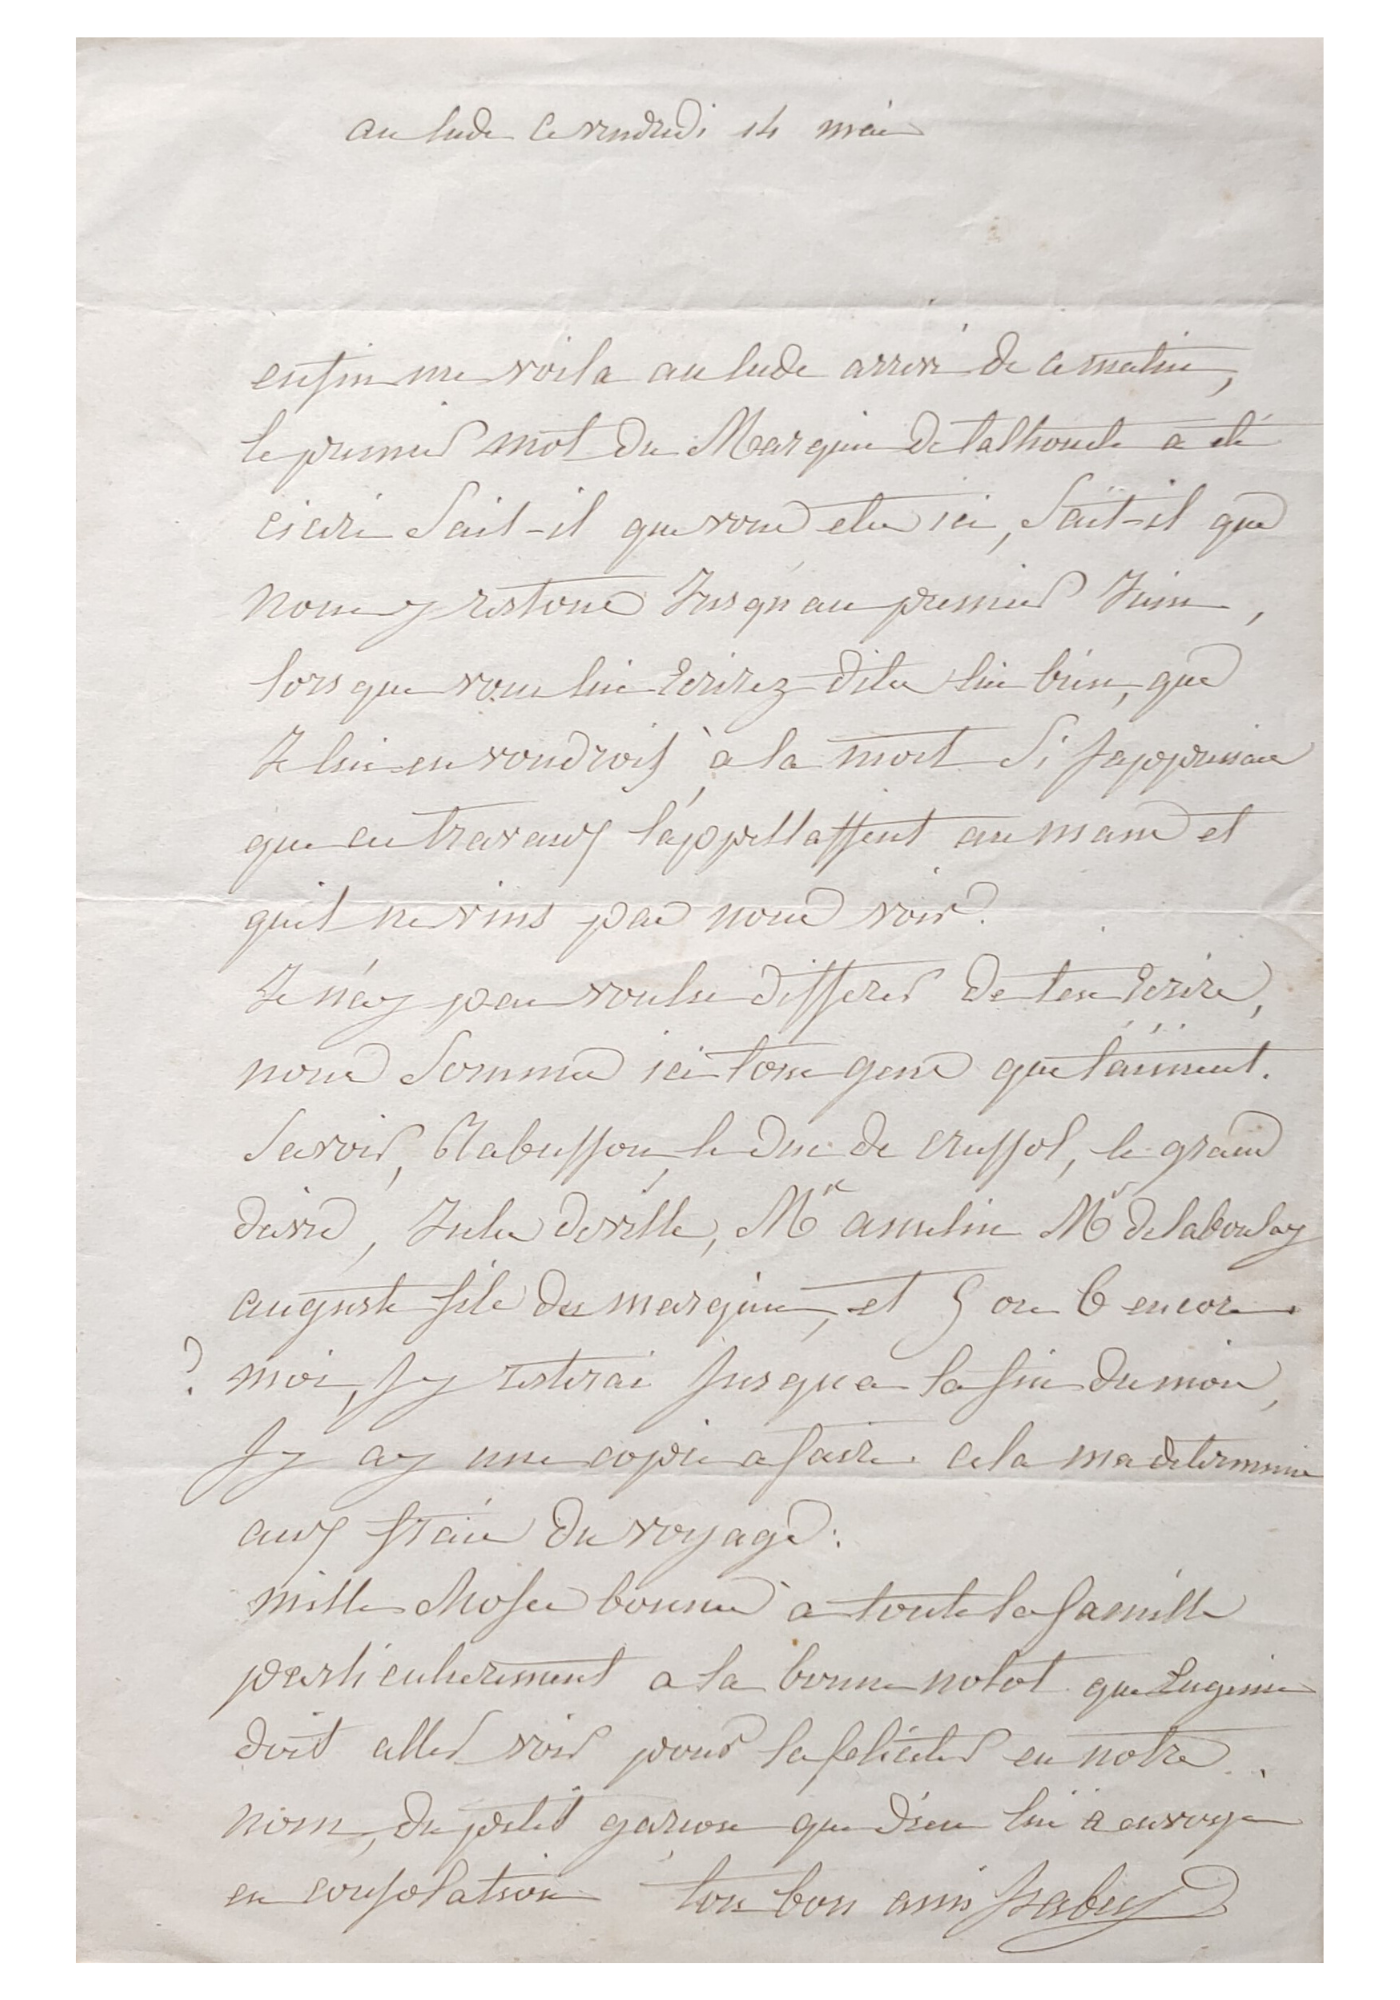 au lude ce vendredi 14 mai
enfin me voila au lude arrivé de ce matin,
le premier mot du Marquis de talhouet a été
ciceri Sait-il que vous etes ici, Sait-il que
nous y restons Jusqu'au premier Juin,
lorsque vous lui Ecrirez dites lui bien, que
Je lui en voudrois à la mort Si J'apprenais
que ces travaux l'appellassent au mans et
quil ne vins pas nous voir.
Je n'ay pas voulu differer de te Ecrire,
nous Sommes ici tous gens qui t'aiment.
Savoir, le Duc de Crussol, le grand
Jules deville, Mr amelin Mr delaboulay
auguste fils du marquis, et 5 ou 6 encore.
? moi, J'y resterai Jusqu a la fin du mois,
J'y ay une copie a faire. cela ma determiné
aux frais du voyage.
mille choses bonnes à toute la famille
particulierement a la bonne nolot que Eugenie
doit aller voir pour la feliciter en notre
nom, du petit garcon que dieu lui a envoyé
en consolation ton bon ami Isabey